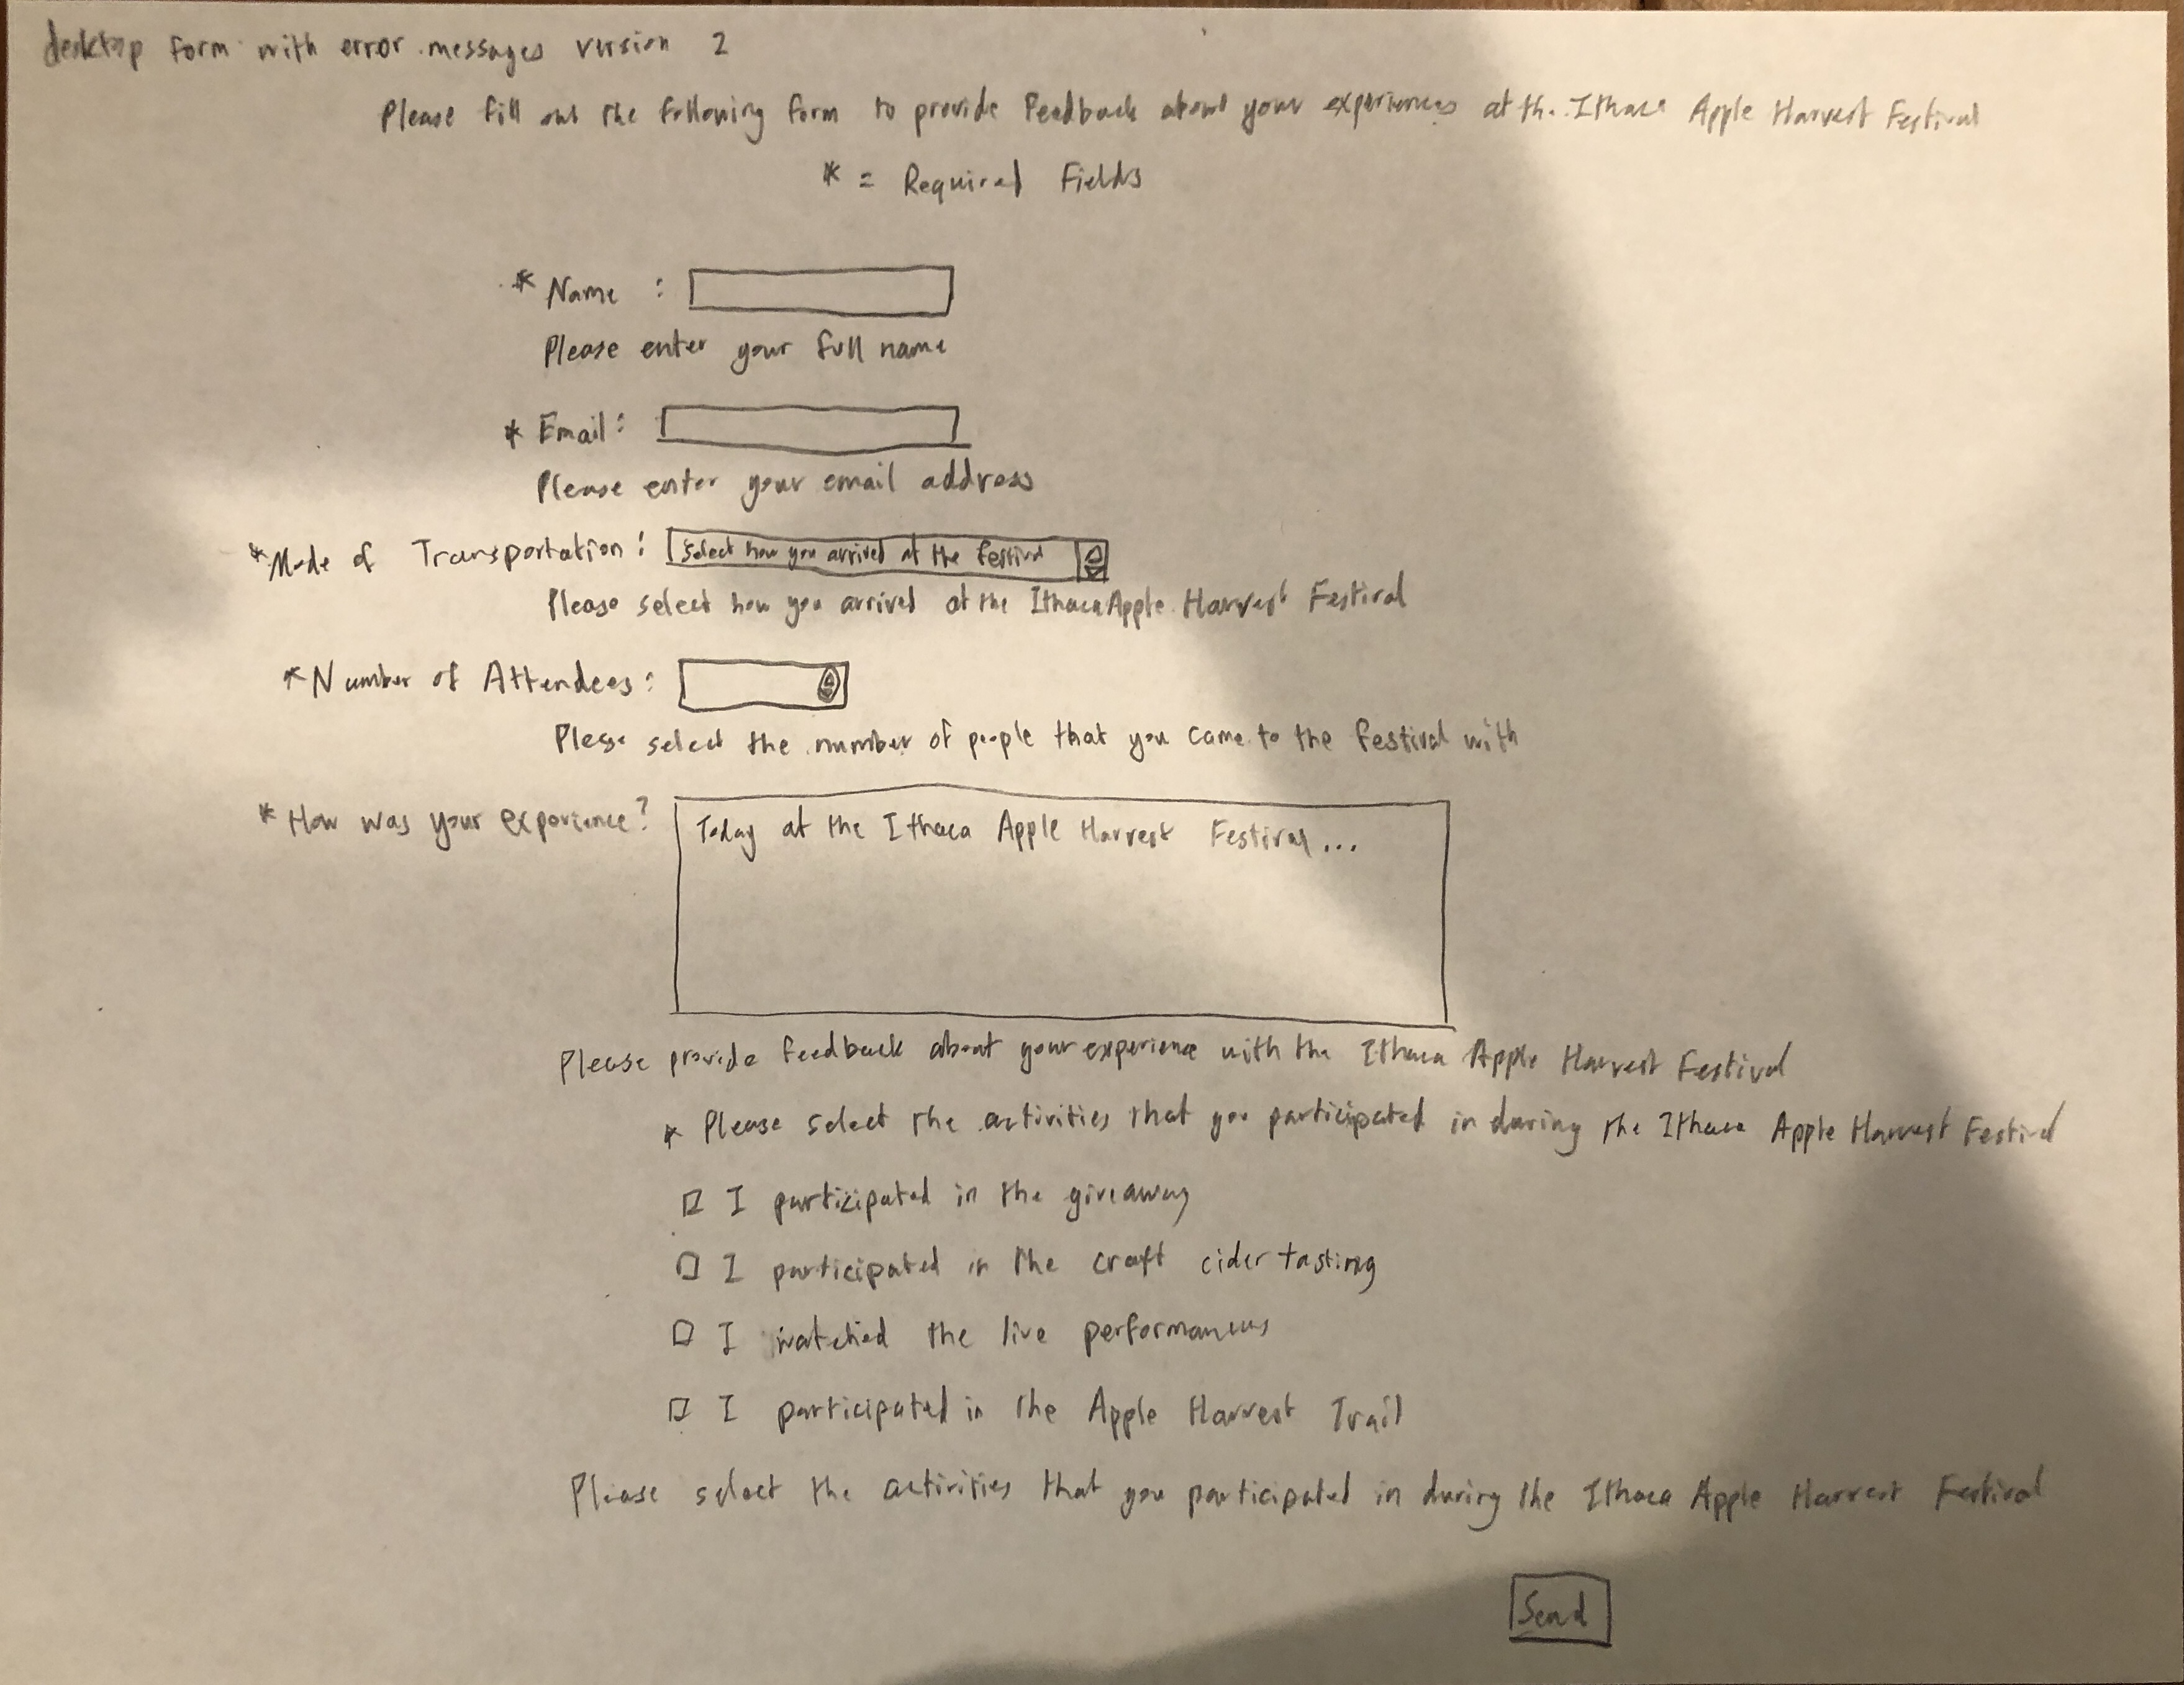 desktop form with error messages version 2
Please fill out the following form to provide feedback about your experiences at the Ithaca Apple Harvest Festival
* = Required Fields
* Name :
Please enter your full name
* Email :
Please enter your email address
* Mode of Transportation : Select how you arrived at the festival
Please select how you arrived at the Ithaca Apple Harvest Festival
* Number of Attendees :
Please select the number of people that you came to the festival with
* How was your experience? Today at the Ithaca Apple Harvest Festival...
Please provide feedback about your experience with the Ithaca Apple Harvest Festival
* Please select the activities that you participated in during the Ithaca Apple Harvest Festival
I participated in the giveaway
I participated in the craft cider tasting
I watched the live performances
I participated in the Apple Harvest Trail
Please select the activities that you participated in during the Ithaca Apple Harvest Festival
Send